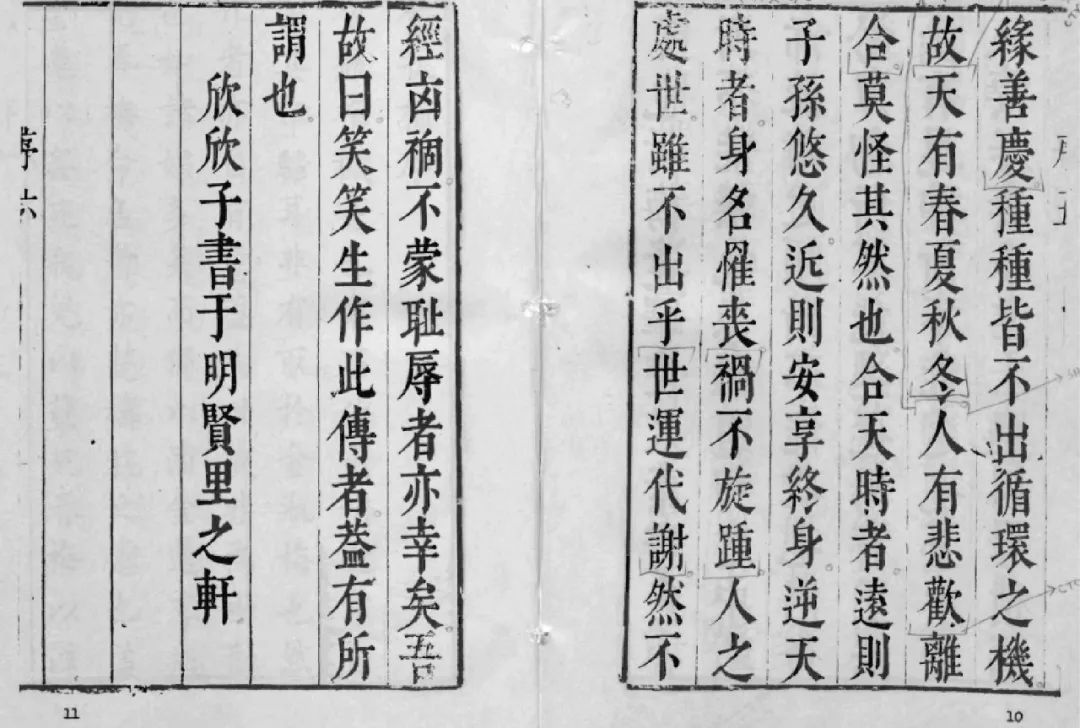 緣善慶種種皆不出循環之機
故天有春夏秋冬人有悲歡離
合莫怪其然也合天時者遠則
子孫悠久近則安享終身逆天
時者身名罹喪禍不旋踵人之
處世雖不出乎世運代謝然不
10
經凶禍不蒙耻辱者亦幸矣吾
故曰笑笑生作此傳者葢有所
謂也
欣欣子書于明賢里之軒
序六
11